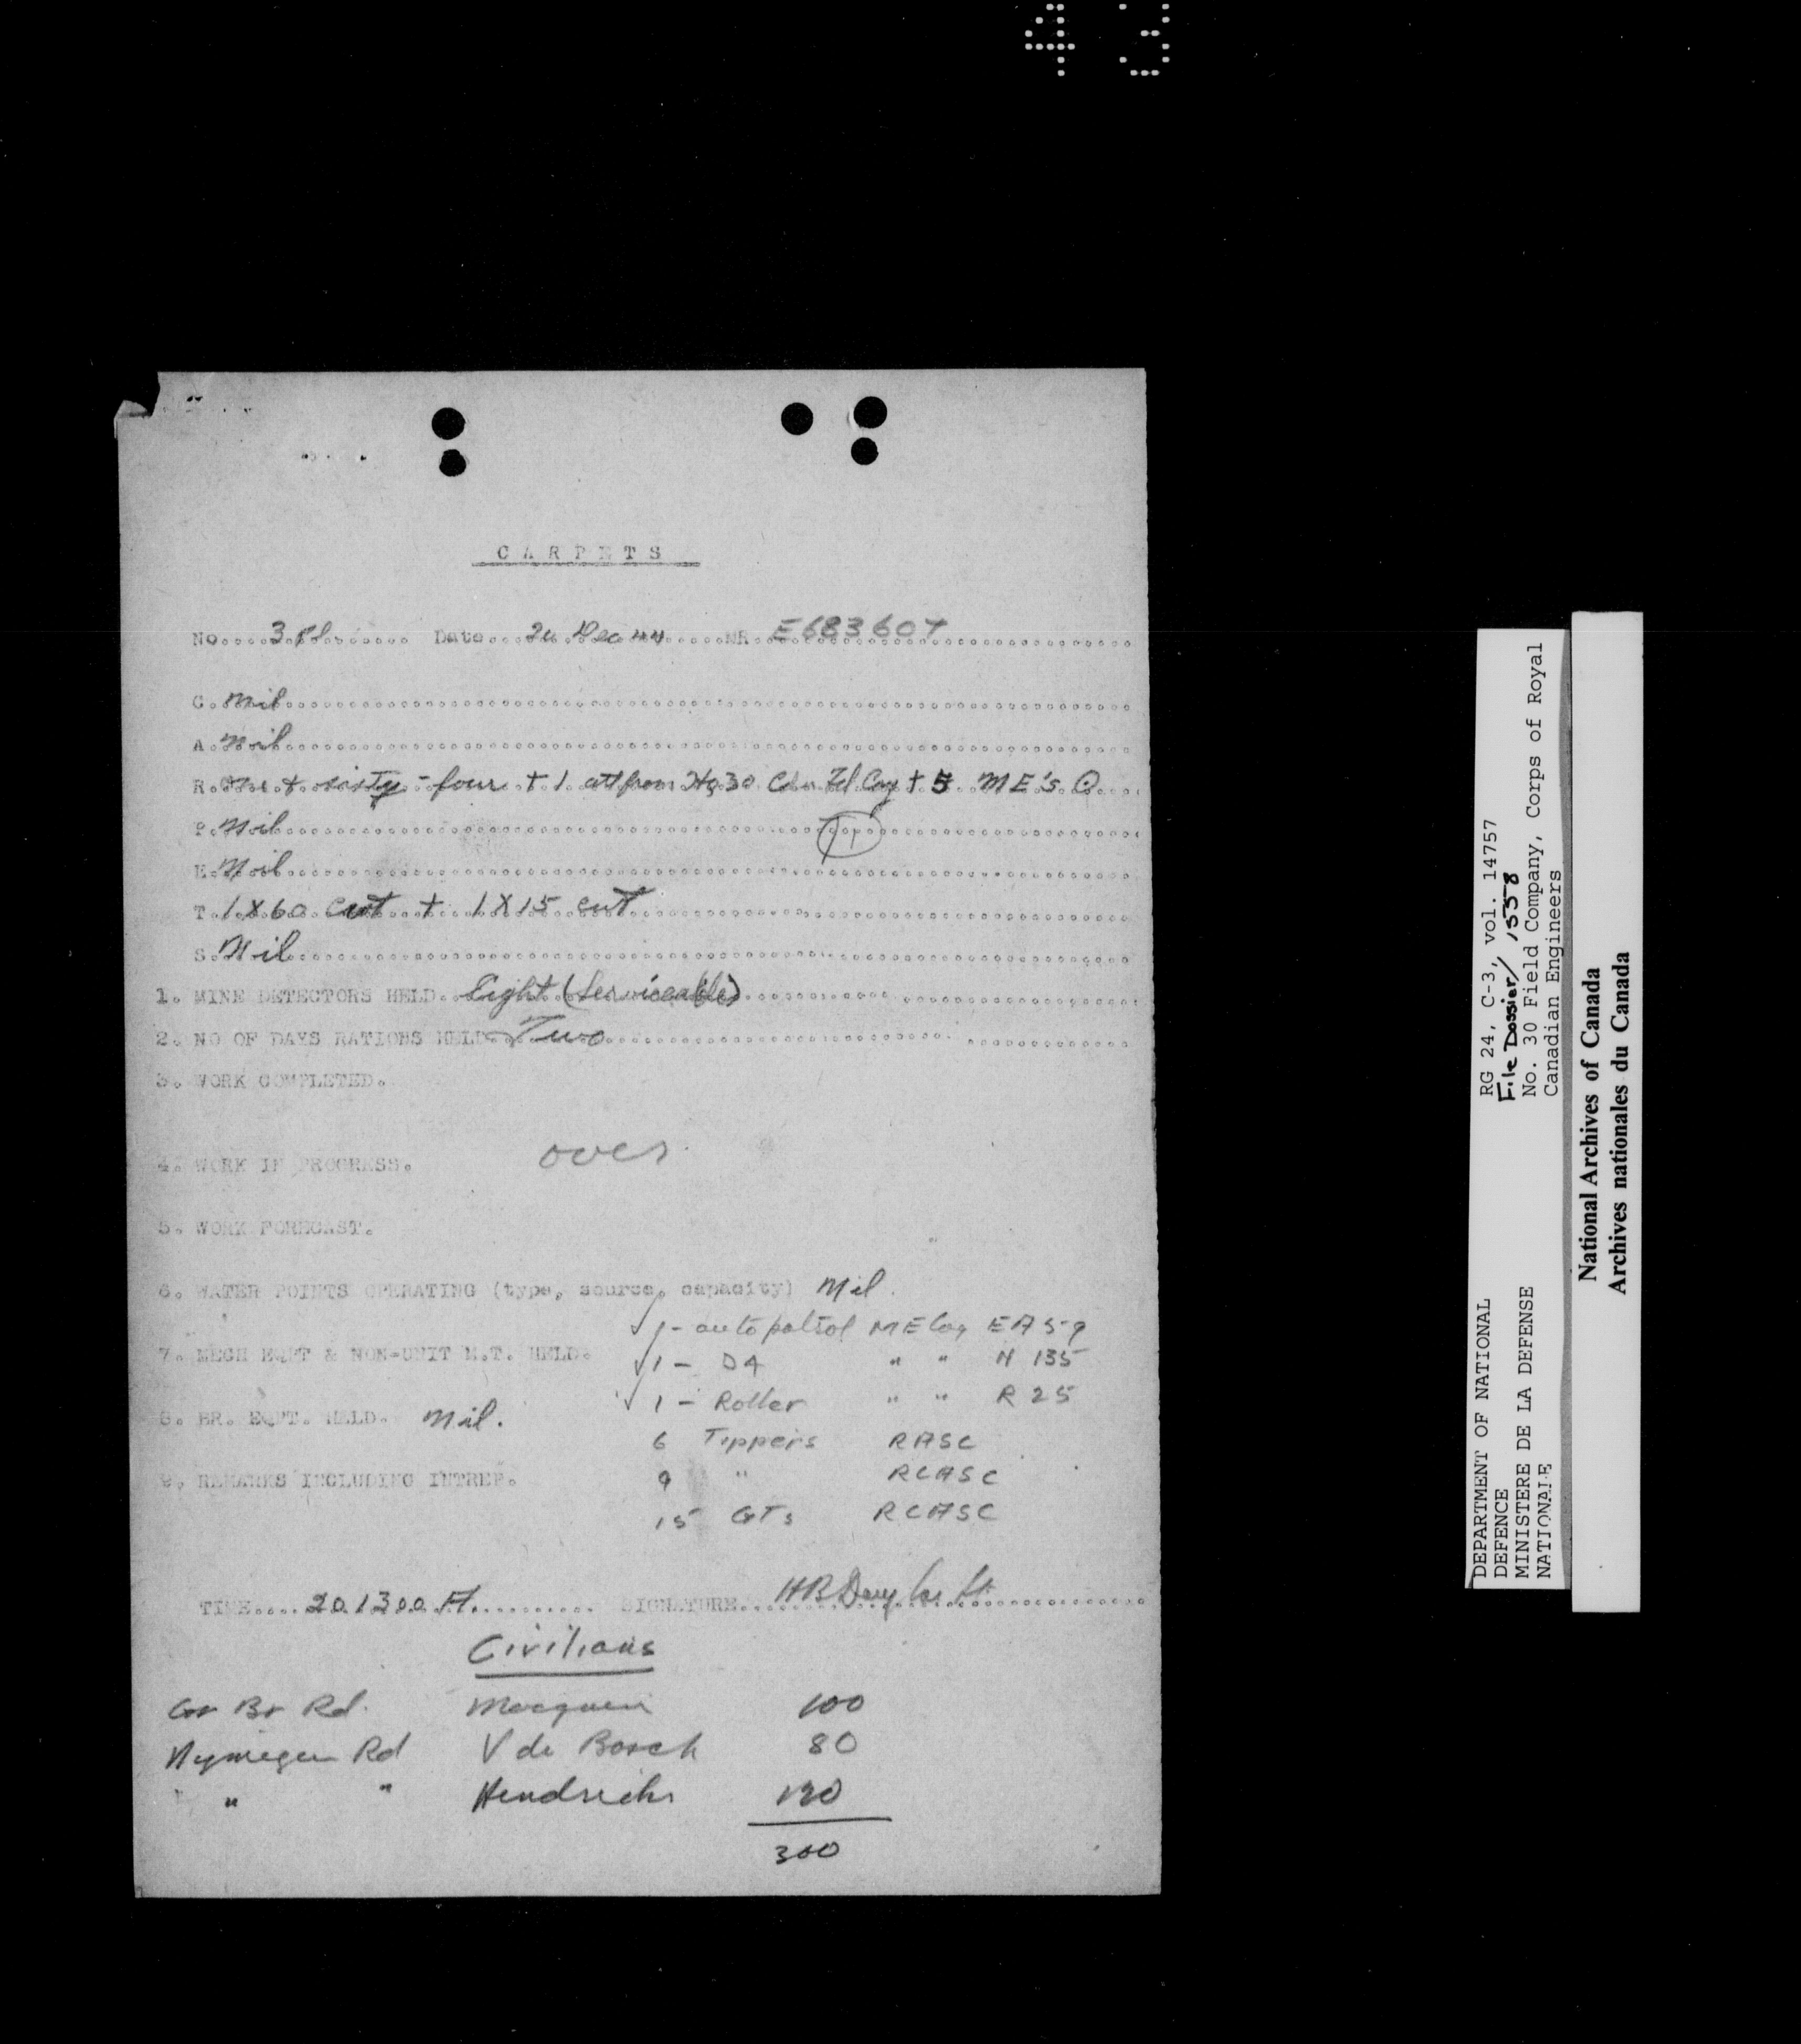 43
CARPETS
No....3 Pl....... Date...20 Dec 44.....MR..E683607
C. Nil
A. Nil
R. One + sixty-four + 1 att from Hq 30 Cdn Fd Coy + 5 ME's
P. Nil
E. Nil
T. 1 X 60 cwt + 1 X 15 cwt
S. Nil
1. MINE DETECTORS HELD. Eight (Serviceable)
2. NO OF DAYS RATIONS HELD Two
3. WORK COMPLETED.
over
4. WORK IN PROGRESS.
5. WORK FORECAST.
6. WATER POINTS OPERATING (type, source, capacity) Nil.
√ 1 - auto patrol ME Coy EA 59
7. MECH EQPT & NON-UNIT M.T. HELD.
√ 1 - D4 " " H 135
√ 1 - Roller " " R 25
8. BR. EQPT. HELD. Nil.
6 Tippers RASC
9 " RCASC
9. REMARKS INCLUDING INTREP.
15 GTs RCASC
TIME....201300A.......... SIGNATURE... HB
Civilians
Gr Br Rd. 100
Nymegen Rd V de Bosch 80
" " Hendrichs 120
300
DEPARTMENT OF NATIONAL DEFENCE
MINISTERE DE LA DEFENSE NATIONALE
RG 24, C-3, vol. 14757
File Dossier/ 1558
No. 30 Field Company, Corps of Royal
Canadian Engineers
National Archives of Canada
Archives nationales du Canada